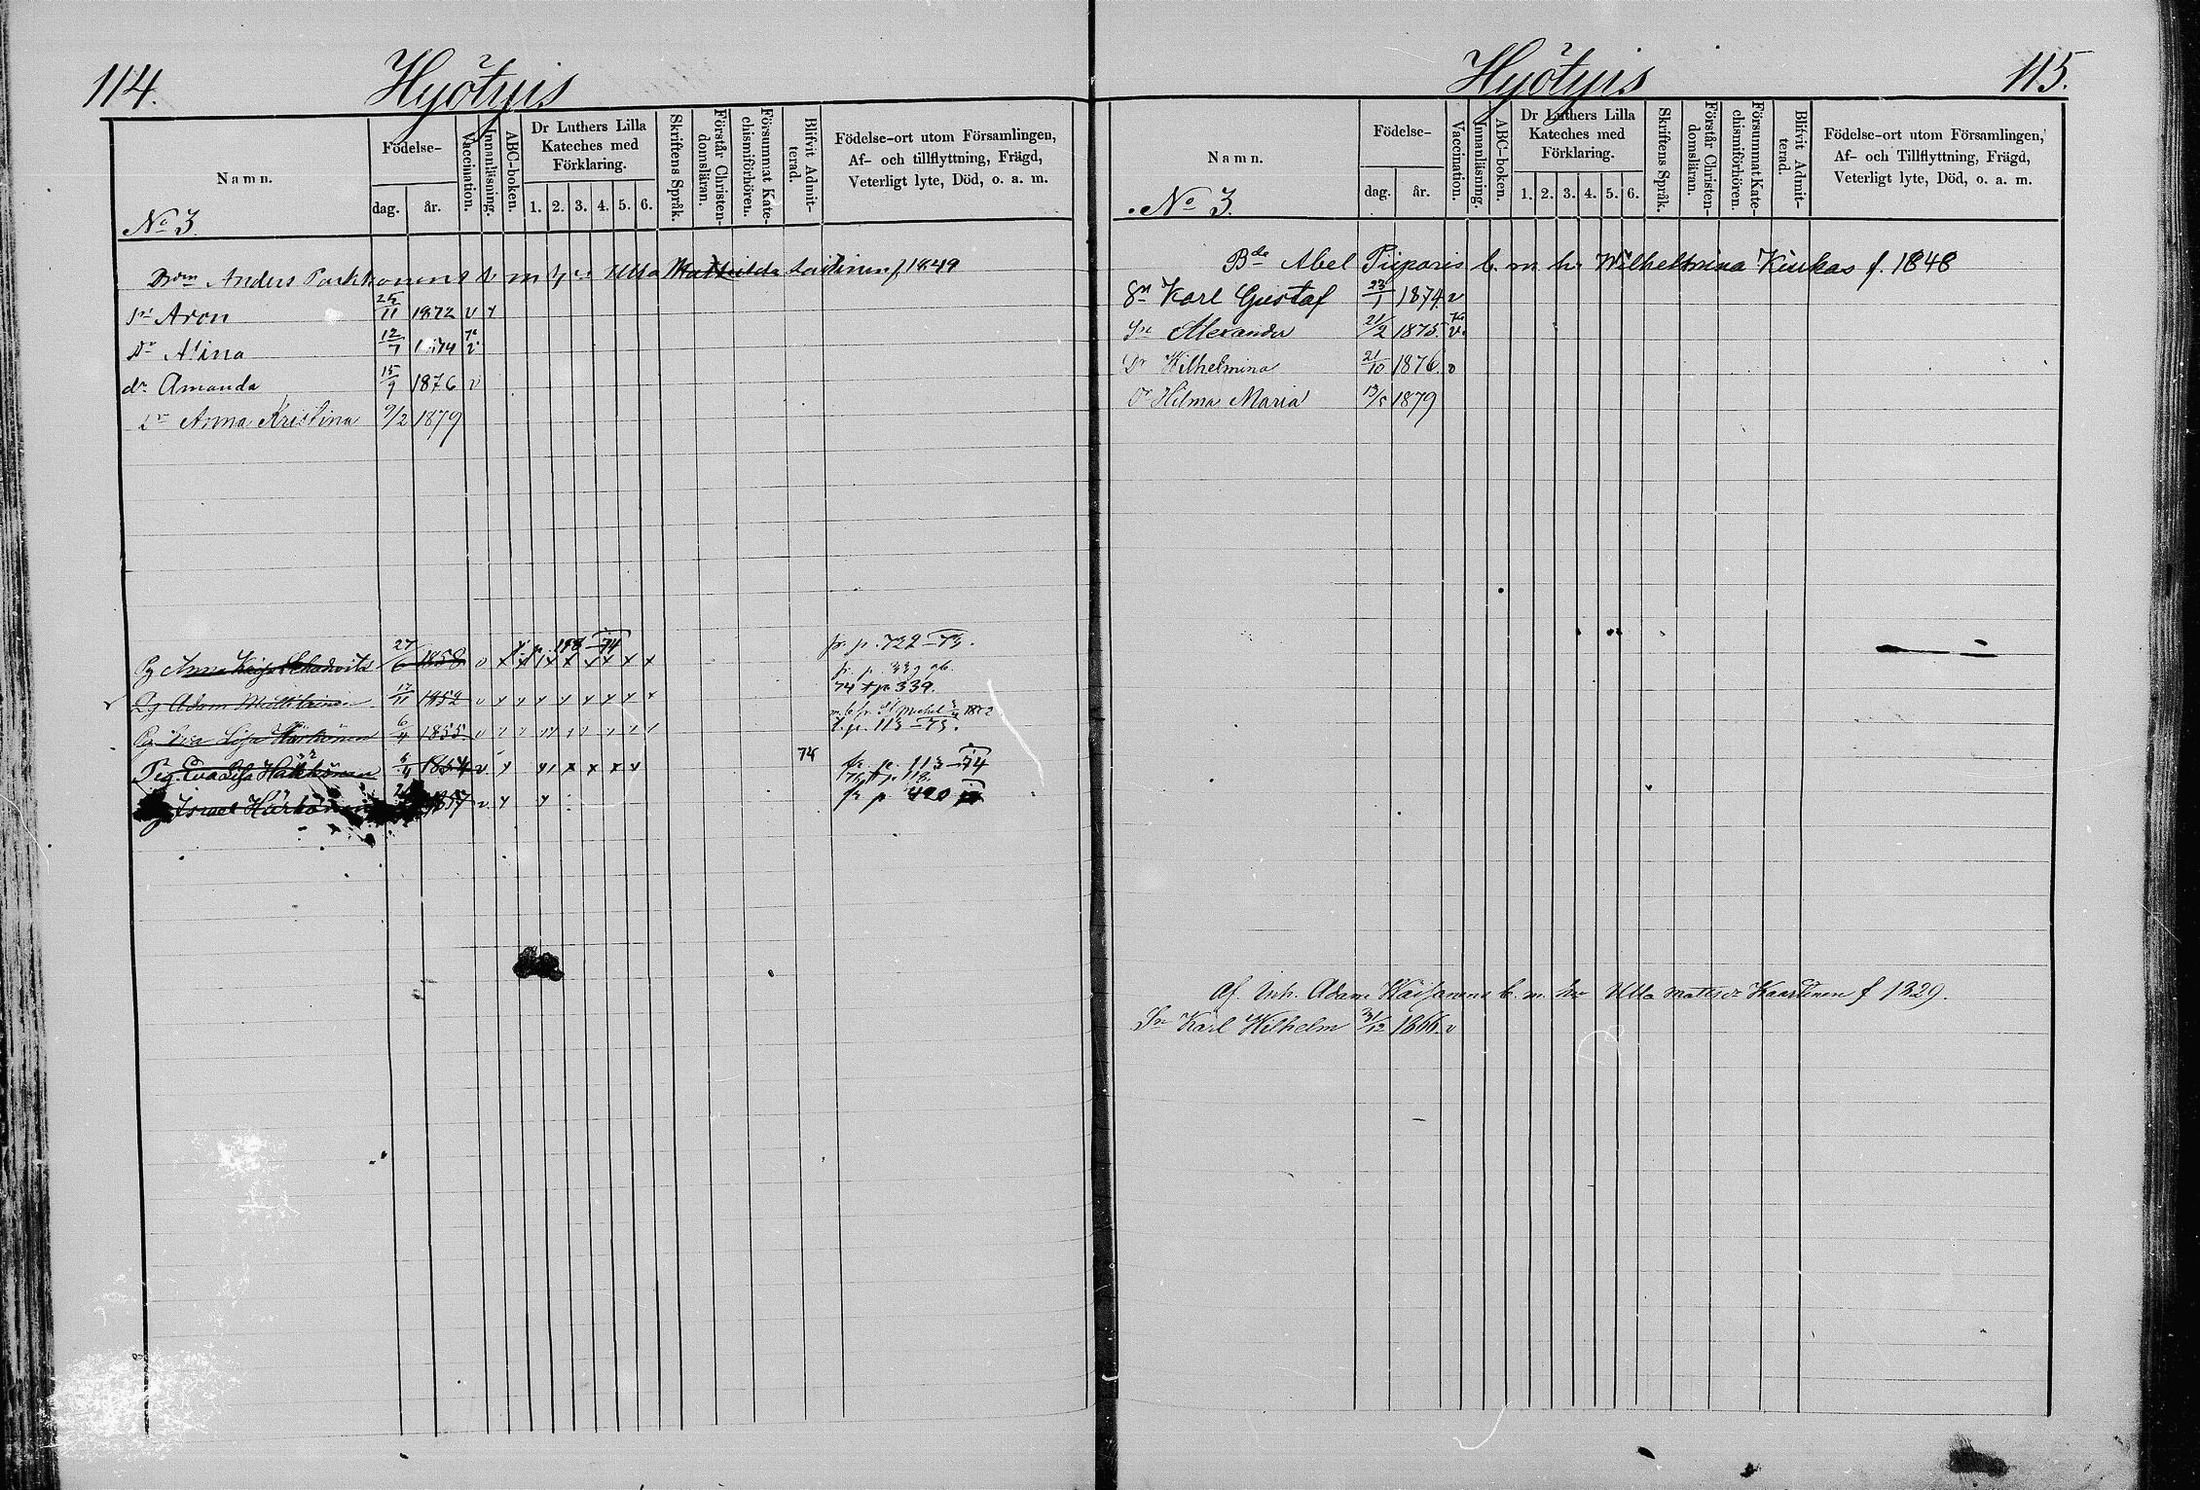 114.
Hyötyis
Namn.
Födelse-
dag.
år.
Vaccination.
Innanläsning.
ABC-boken.
Dr Luthers Lilla
Kateches med
Förklaring.
1. 2. 3. 4. 5. 6.
Skriftens Språk.
Förstår Christen-
domsläran.
Försummat Kate-
chismiförhören.
Blifvit Admit-
terad.
Födelse-ort utom Församlingen,
Af- och tillflyttning, Frägd,
Veterligt lyte, Död, o. a. m.
No 3.
Anders Parkkonens b m h Ulla f 1849
Sn Aron 11 1872 v y
Dr Alina 12/7 1874 v
dr Amanda 15/9 1876 v
Dr Anna Kristina 9/2 1879
Anna 27/6 1858 v x x x x x x x
fr p. 722 73.
Adam 17/11 1852 v y y y y y y y x
74 t p 339.
Lisa 6/4 1855 v
t. p. 113 73.
Pig. Eva Lisa 1854 v y y x x x y 74
fr. p. 113 74
Israel Härkönen 1857 v y y
fr p 420
115.
Hyötyis
Namn.
Födelse-
dag.
år.
Vaccination.
Innanläsning.
ABC-boken.
Dr Luthers Lilla
Kateches med
Förklaring.
1. 2. 3. 4. 5. 6.
Skriftens Språk.
Förstår Christen-
domsläran.
Försummat Kate-
chismiförhören.
Blifvit Admit-
terad.
Födelse-ort utom Församlingen,
Af- och Tillflyttning, Frägd,
Veterligt lyte, Död, o. a. m.
No 3.
Bde Abel Piiparis b. m. h. Wilhelmina Kiukas f. 1848
Sn Karl Gustaf 23/1 1874 v
Sn Alexander 21/2 1875 v
Dr Wilhelmina 21/10 1876 v
Dr Hilma Maria 1879
Af. Inh. Adam b. m. h. Ulla Matsdr f 1829.
Sn Karl Wilhelm 31/12 1866 v